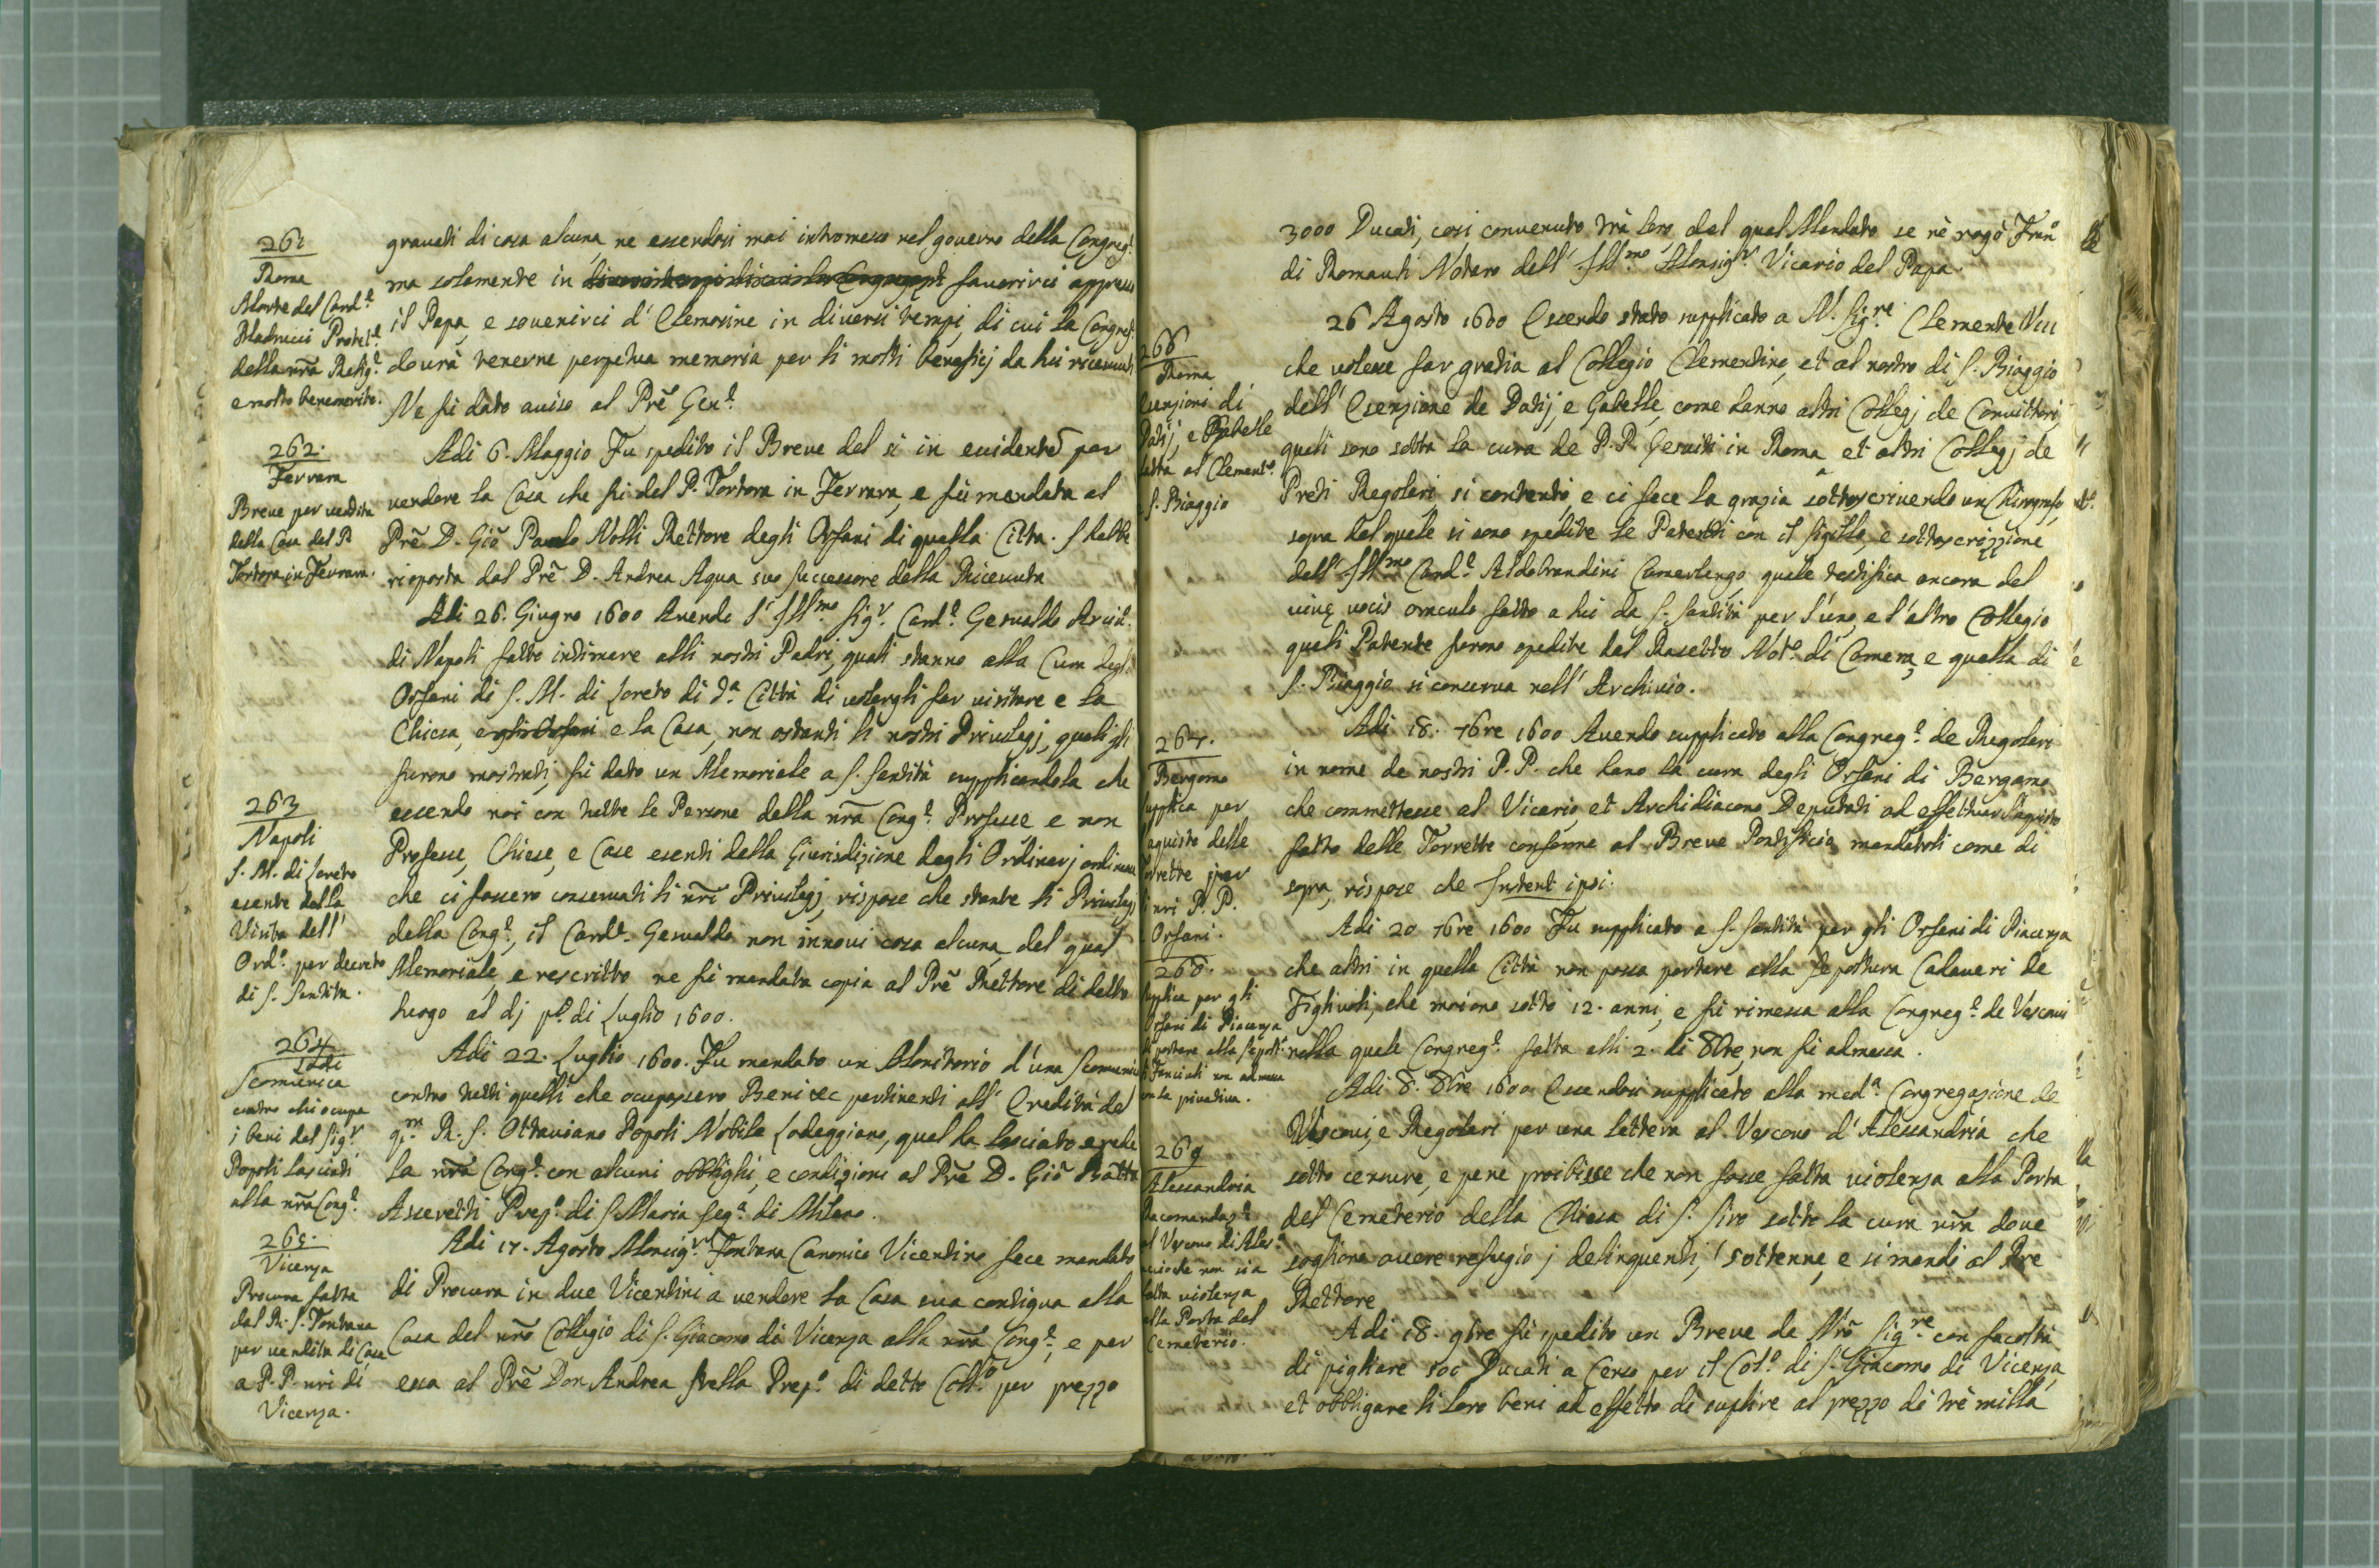 261
Roma
Morte del Card.e
Madrucci Protet.e
della nr̃a Relig.e
e molto benemerito.
gravati di cosa alcuna, ne essendosi mai intromesso nel governo della Congreg.e
ma solamente in favorirci appresso
il Papa, e sovenirci d' Elemosine in diversi tempi, di cui la Congreg.e
dourà tenerne perpetua memoria per li molti beneficj da lui ricevuti
Ne fù dato aviso al Prẽ Gen.e
262.
Ferrara
Breve per vendita
della Casa del P.
Tortora in Ferrara.
Adi 6. Maggio Fu spedito il Breve del si in evidentẽ per
vendere la Casa che fù del P. Tortora in Ferrara, e fù mandata al
Prẽ D. Giõ Paolo Nolli Rettore degli Orfani di quella Citta. S'hebbe
risposta dal Prẽ D. Andrea Aqua suo successore della Ricevuta
263
Napoli
S. M. di Loreto
esente dalla
Visita dell'
Ord.o per decreto
di S. Santita.
Adi 26. Giugno 1600 Avendo l' Ill.mo Sig.r Card.e Gesualdo Arciv.
di Napoli fatto intimare alli nostri Padri, quali stanno alla Cura degli
Orfani di S. M. di Loreto di d.a Città di volergli far visitare e la
Chiesa, e gli Orfani e la Casa, non ostanti li nostri Privilegj, quali gli
furono mostrati, fù dato un Memoriale a S. Santità supplicandola che
essendo noi con tutte le Persone della nr̃a Cong.e Professe e non
Professe, Chiese, e Case esenti della Giurisdizione degli Ordinarj ordinasse
che ci fossero conservati li nr̃i Privilegj, rispose che stante li Privilegj
della Cong.e, il Card.e Gesualdo non innovi cosa alcuna, del qual
Memoriale, e rescritto ne fù mandata copia al Prẽ Rettore di detto
luogo al dj p.o di Luglio 1600.
264
Lodi
Scomunica
contro chi ocupa
i beni del Sig.r
Popoli lasciati
alla nr̃a Cong.e
Adi 22. Luglio 1600. Fu mandato un Monitorio d'una Scomunica
contro tutti quelli che ocupassero Beni &c pertinenti all' Eredità del
q.m R. S. Ottaviano Popoli Nobile Lodeggiano, qual ha lasciato erede
la nr̃a Cong.e con alcuni obblighi, e condizioni al Prẽ D. Giõ Batta
Assereti Prep.o di S. Maria Seg.a di Milano.
265.
Vicenza
Procura fatta
dal R. S. Fontana
per vendita di Casa
a P.P. nri di
Vicenza.
Adi 17. Agosto Monsig.r Fontana Canonico Vicentino fece mandato
di Procura in due Vicentini à vendere la Casa sua contigua alla
Casa del nr̃o Collegio di S. Giacomo di Vicenza alla nr̃a Cong.e, e per
essa al Prẽ Don Andrea Stella Prep.o di detto Coll.o per prezzo
3000 Ducati, cosi convenuto trà loro, del qual Mandato se nè rogò Fran.o
di Romauli Notaro dell' Ill.mo Monsig.r Vicario del Papa
266
Roma
Esenzioni di
Datij, e Gabelle
fatta al Clement.o
S. Biaggio
26 Agosto 1600 Essendo stato supplicato a N. Sig.re Clemente VIII
che volesse far gratia al Collegio Clementino, et al nostro di S. Biaggio
dell' Esenzione de Datij e Gabelle, come hanno altri Collegj de Convittori,
quali sono sotto la cura de P.P. Gesuiti in Roma, et altri Collegj de
Preti Regolari, si contentò, e ci fece la grazia sottoscrivendo un Chirografo,
sopra del quale si sono spedite le Patenti con il sigillo, e sottoscrizzione
dell' Ill.mo Card.e Aldobrandini Camerlengo, quale testifica ancora del
vivę vocis oraculo fatto a lui da S. Santità per l'uno, e l'altro Collegio
quali Patente furono spedite dal Rasetto Not.o di Camera, e quella di
S. Biaggio si conserva nell' Archivio.
267.
Bergomo
supplica per
aquisto delle
Torrette per
li nri P.P.
Orfani.
Adi 18. 7bre 1600 Avendo supplicato alla Congreg.e de Regolari
in nome de nostri P.P. che hano la cura degli Orfani di Bergamo,
che commettesse al Vicario, et Archidiacono Deputati ad effettuar l'aquisto
fatto delle Torrette conforme al Breve Pontificio mandatoli come di
sopra, rispose che Instent ipsi.
268.
Supplica per gli
Orfani di Piacenza
di portare alla sepolt.a
li Fanciuli non admessa
con la privativa.
Adi 20 7bre 1600 Fu supplicato a S. Santità per gli Orfani di Piacenza
che altri in quella Città non possa portare alla sepoltura Cadaveri de
Figlivoli, che moiono sotto 12. anni, e fù rimessa alla Congreg.e de Vescovi
nella quale Congreg.e fatta alli 2. di 8bre, non fù admessa.
269
Alessandria
Racomandaz.e
al Vescovo di Ales.a
acciochè non sia
fatta violenza
alla Porta del
Cemeterio.
Adi 8. 8bre 1600. Essendosi supplicato alla med.a Congregazione de
Vescovi, e Regolari per una lettera al Vescovo d' Alessandria che
sotto censure, e pene proibisse che non fosse fatta violenza alla Porta
del Cemeterio della Chiesa di S. Siro sotto la cura nr̃a dove
sogliono avere refugio j delinquenti, s'ottenne, e si mandò al Pre
Rettore
Adi 18. 9bre fù spedito un Breve da Nr̃o Sig.re con facoltà
di pigliare 500 Ducati a Censo per il Col.o di S. Giacomo di Vicenza,
et obbligare li loro beni ad effetto di suplire al prezzo de trè milla